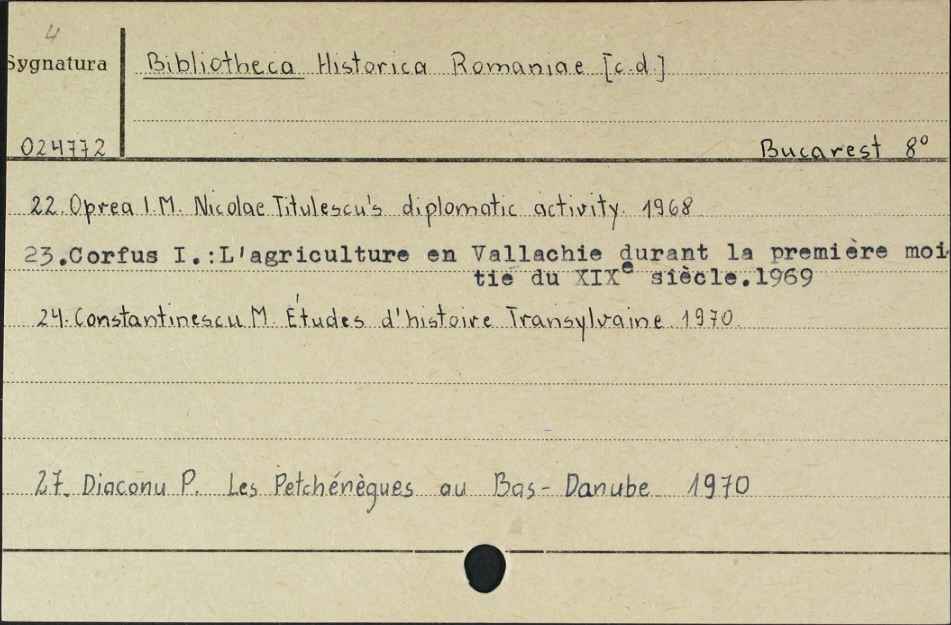 4
Sygnatura
Bibliotheca Historica Romaniae [c.d.]
024772
Bucarest 8°
22. Oprea I.M. Nicolae Titulescu's diplomatic activity. 1968
23.Corfus I.:L'agriculture en Vallachie durant la première moi
tié du XIXe siècle.1969
24. Constantinescu M. Études d'histoire Transylvaine 1970
27. Diaconu P. Les Petchénègues au Bas-Danube 1970